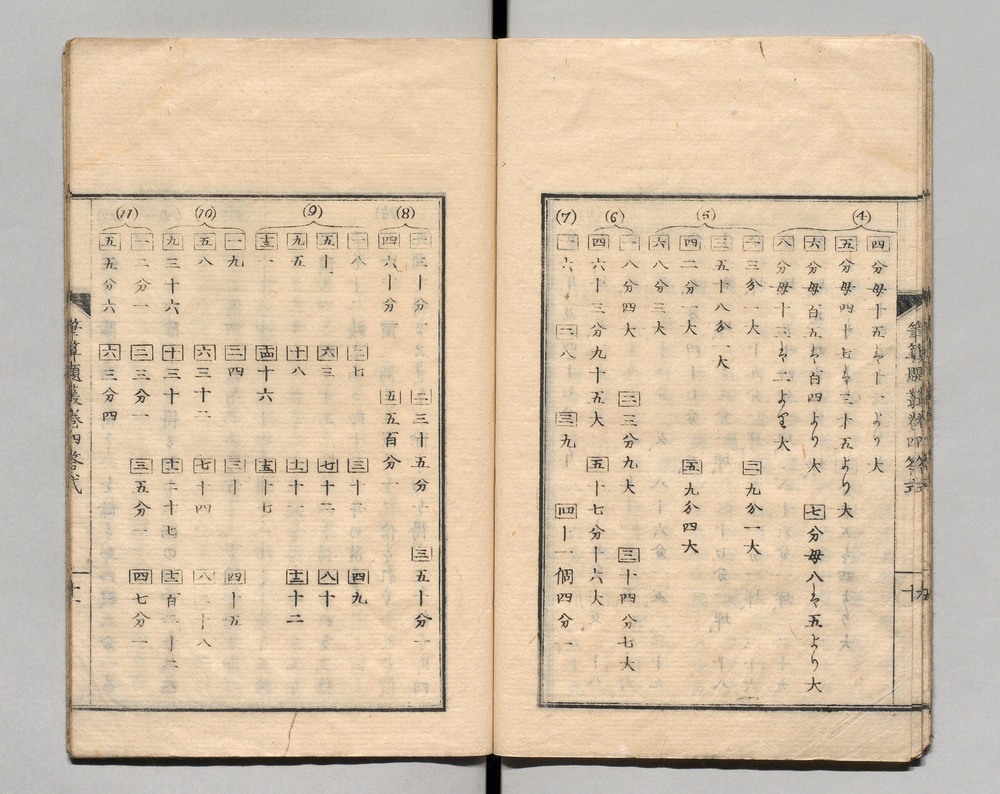 (4)
四 分母十五は十一より大
五 分母四十七は三十五より大
六 分母百五は百四より大 七 分母八は五より大
八 分母十三は二より大
(5)
一 三分一大 二 九分一大
三 五十八分一大
四 二分一大 五 九分四大
六 八分三大
(6)
一 八分四大 二 三分九大 三 十四分七大
四 六十三分九十五大 五 十七分十六大
(7)
一 六 二 八 三 九 四 十一個四分一
筆算題叢巻四答式
(8)
一 三十分一 二 三十五分 三 五十分一
四 六十分 五 五百分一
(9)
一 八 二 七 三 十 四 九
五 十一 六 三 七 十二 八 十
九 五 十 八 十一 十一 十二 十二
十三 一 十四 十六 十五 十七
(10)
一 九 二 四 三 十 四 十五
五 八 六 三十二 七 十四 八 二十八
九 三十六 十 三十 十一 二十七 十二 百二十二
(11)
一 二分一 二 三分一 三 五分一 四 七分一
五 五分六 六 三分四
筆算題叢巻四答式
十一